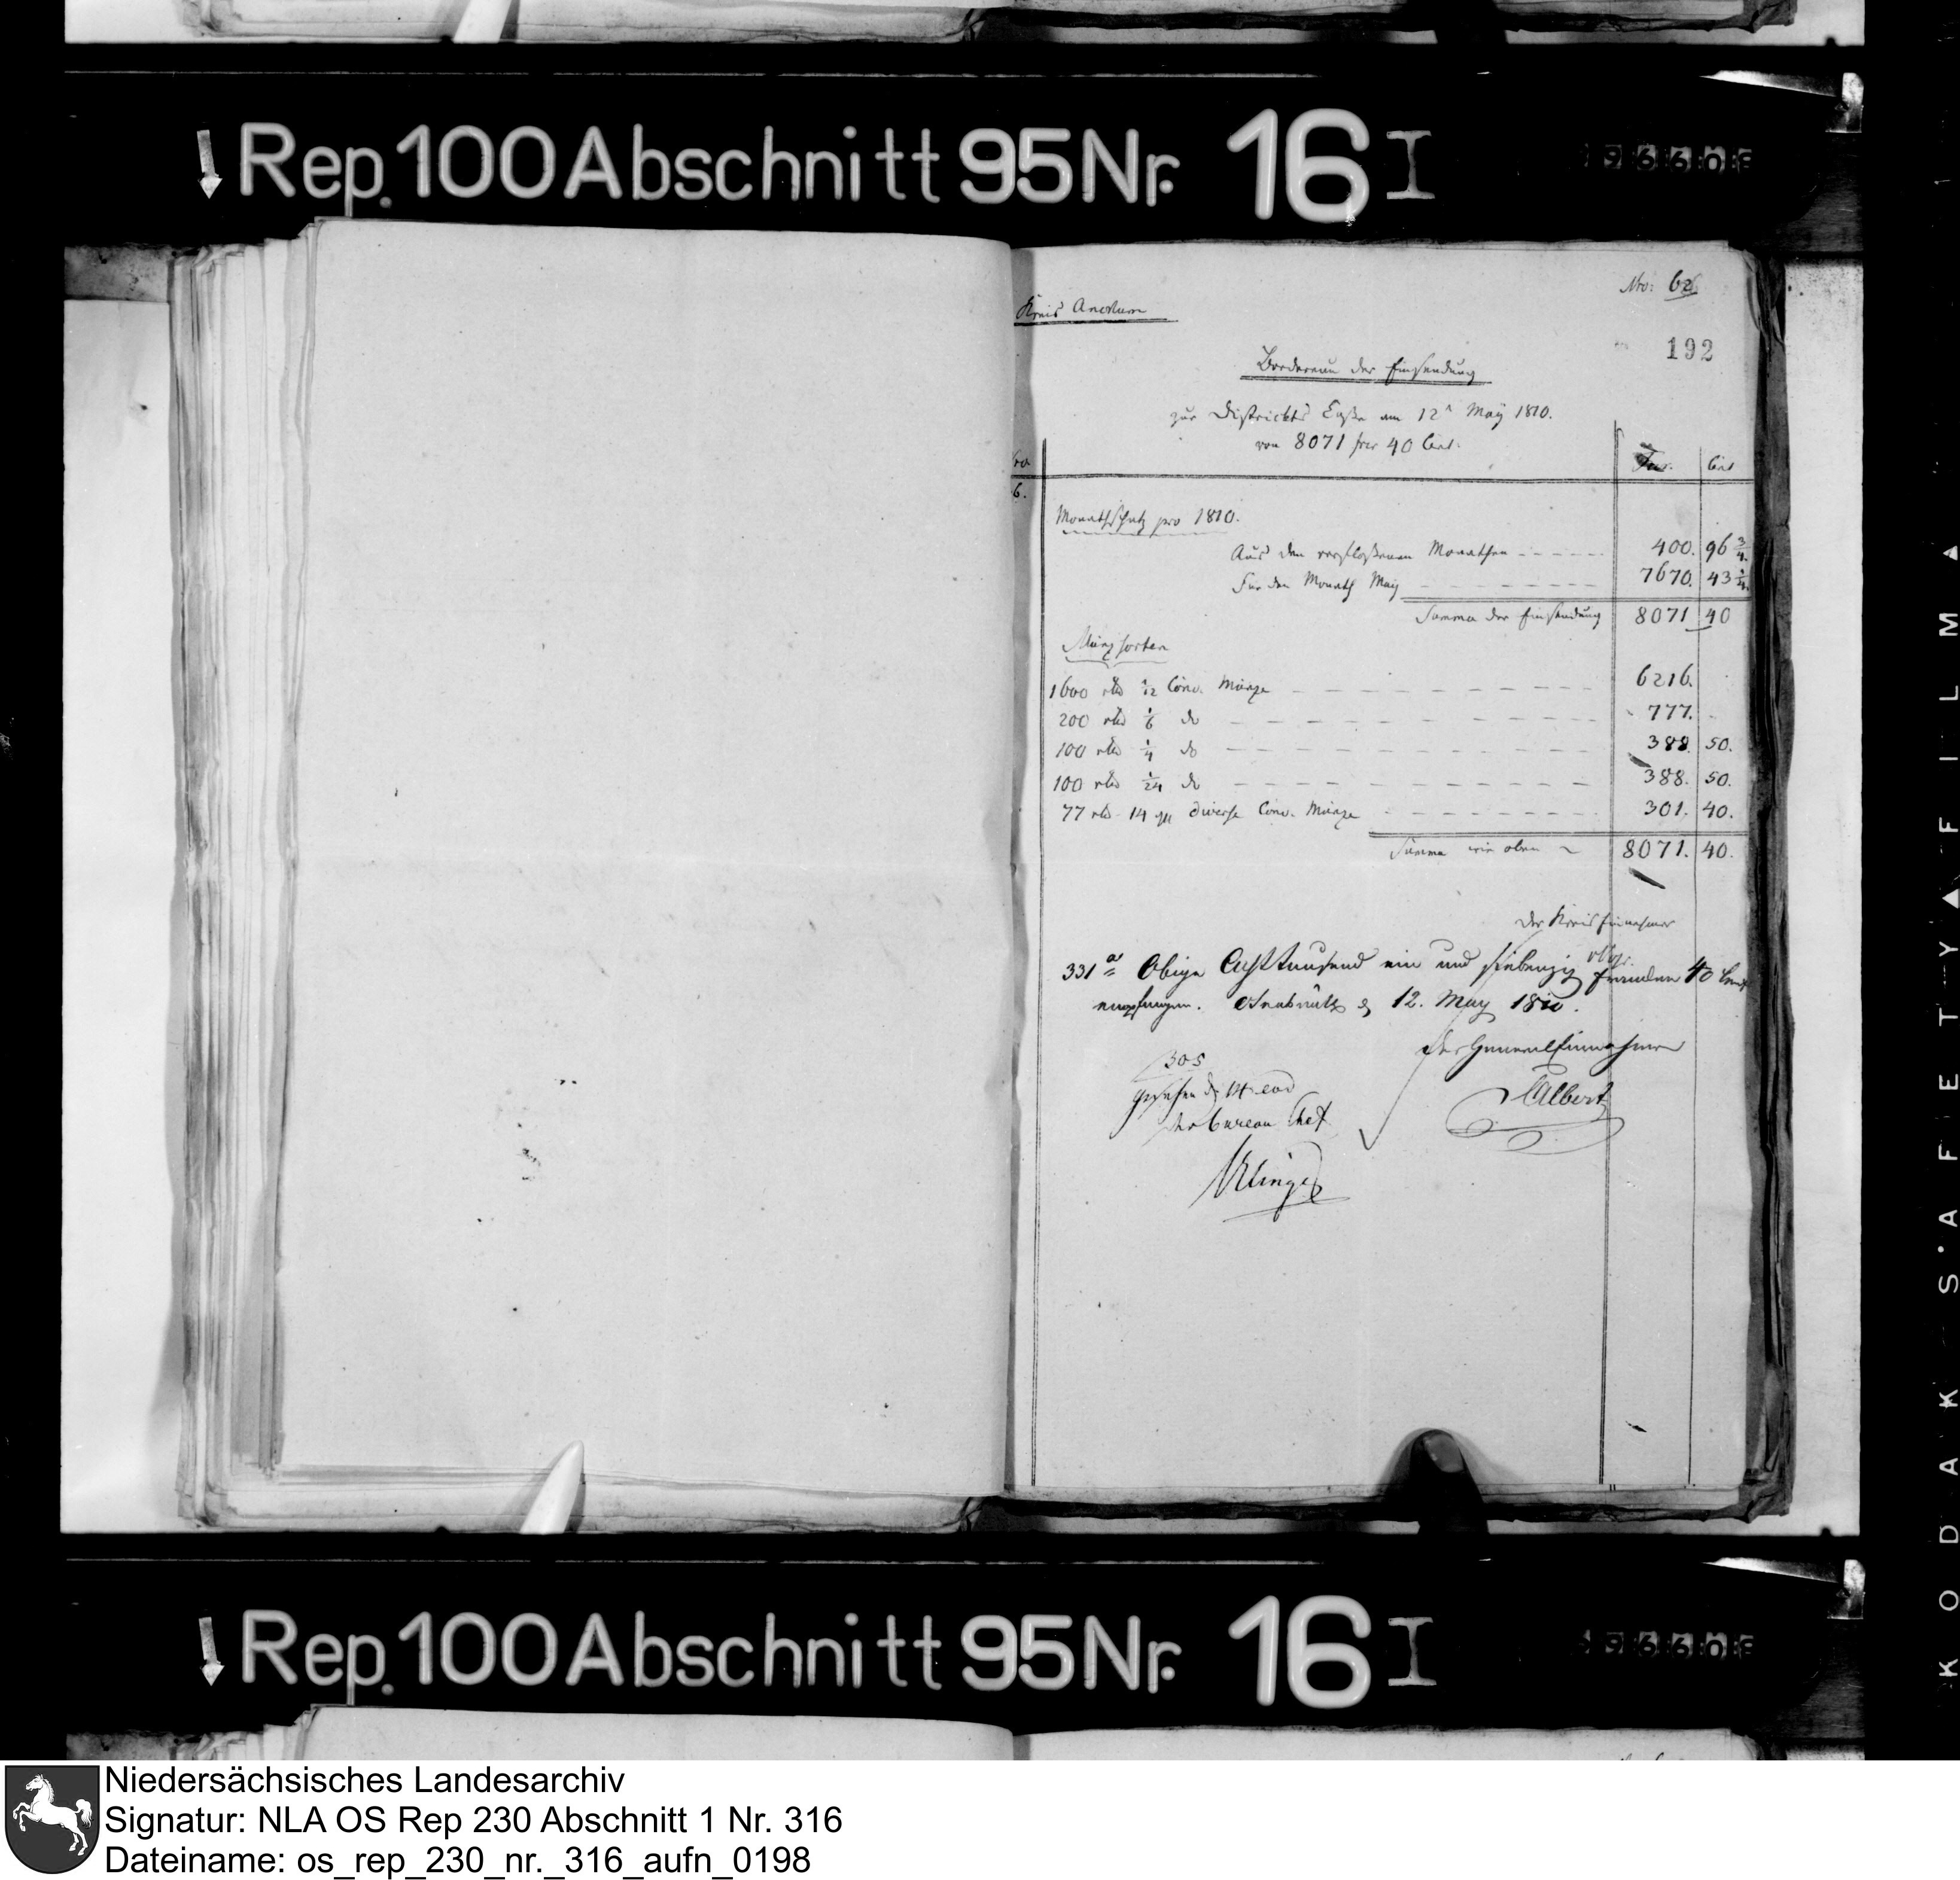 Rep. 100 Abschnitt 95 Nr. 16 I
Nro: 62
Kreis Ancklum
192
Bordereau der Einsendung
zur Districkts Casse am 12t May 1810.
von 8071 frcs 40 Cent.
Cent
6.
Monathschatz pro 1810.
Aus den verfloßenen Monathen 400. 96 3/4
Für den Monath May 7670. 43 1/4
Summa der Einsendung 8071 40
Münzsorten
1600 rtlr 1/12 Conv. Münze 6216.
200 rtlr 1/6 do 777.
100 rtlr 1/4 do 388 50.
100 rtlr 1/24 do 388. 50.
77 rtlr 14 ggr diverse Conv. Münze 301. 40.
Summa wie oben 8071. 40.
Der Kreis Einnehmer
331 a Obige Achttausend ein und siebenzig Franken 40 Cent
empfangen. Osnabrück d 12. May 1810.
Der General Einnehmer
Albert
305
gesehen d 14 eod
Der Bureau Chef
KODAK SAFETY FILM
Rep. 100 Abschnitt 95 Nr. 16 I
Niedersächsisches Landesarchiv
Signatur: NLA OS Rep 230 Abschnitt 1 Nr. 316
Dateiname: os_rep_230_nr._316_aufn_0198